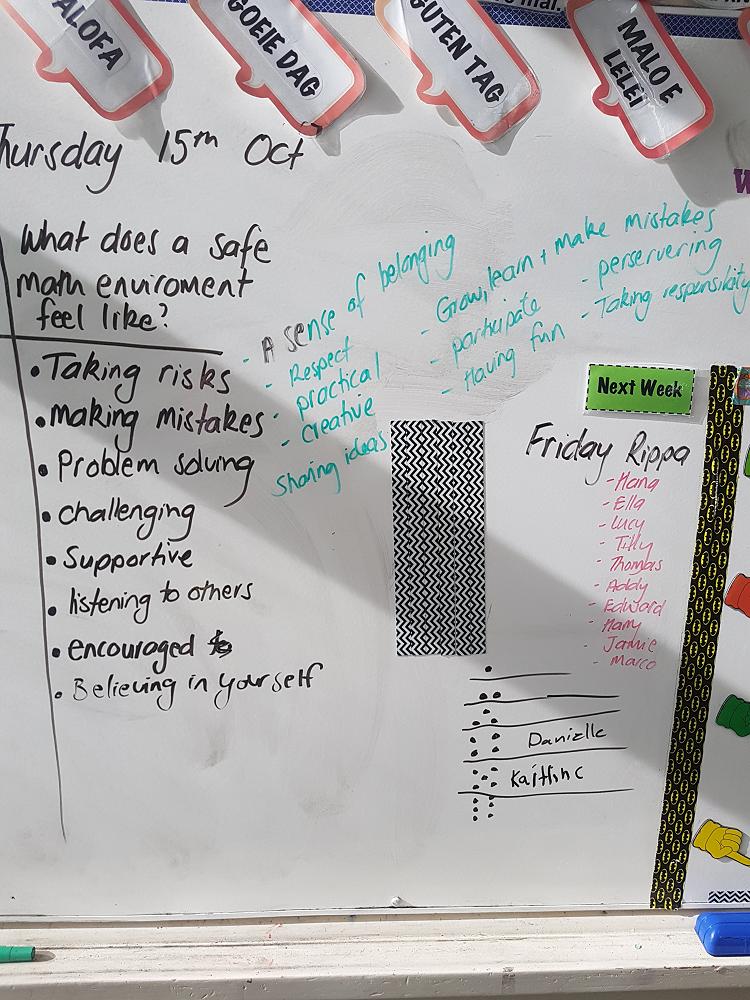 ALOFA
GOEIE DAG
GUTEN TAG
MALO E
LELEI
Thursday 15th Oct
What does a safe
math enviroment
feel like?
• Taking risks
• making mistakes
• Problem solving
• challenging
• Supportive
• listening to others
• encouraged
• Believing in yourself
- A sense of belonging
- Respect
- practical
- creative
Sharing ideas
- Grow, learn + make mistakes
- participate
- Having fun
- perservering
- Taking responsibility
Next Week
Friday Rippa
- Hana
- Ella
- Lucy
- Tilly
- Thomas
- Addy
- Edward
- Harry
- Jamie
- Marco
Danielle
Kaitlin C